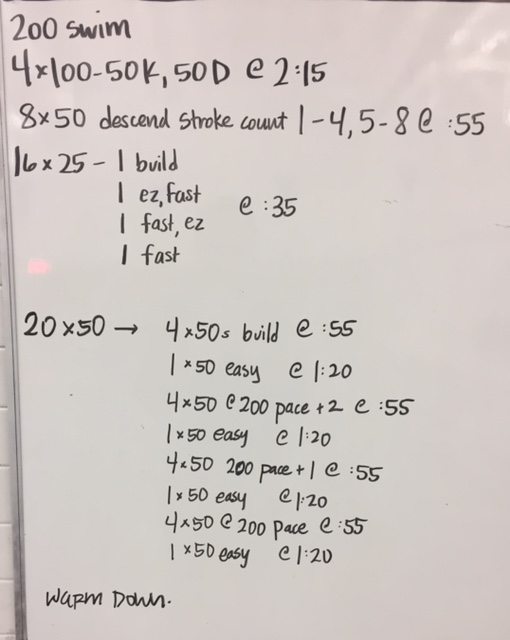 200 swim
4x100-50K, 50D @ 2:15
8x50 descend stroke count 1-4, 5-8 @ :55
16x25 - 1 build
1 ez, fast @ :35
1 fast, ez
1 fast
20x50 → 4x50s build @ :55
1x50 easy @ 1:20
4x50 @ 200 pace +2 @ :55
1x50 easy @ 1:20
4x50 200 pace +1 @ :55
1x50 easy @ 1:20
4x50 @ 200 pace @ :55
1x50 easy @ 1:20
Warm Down.